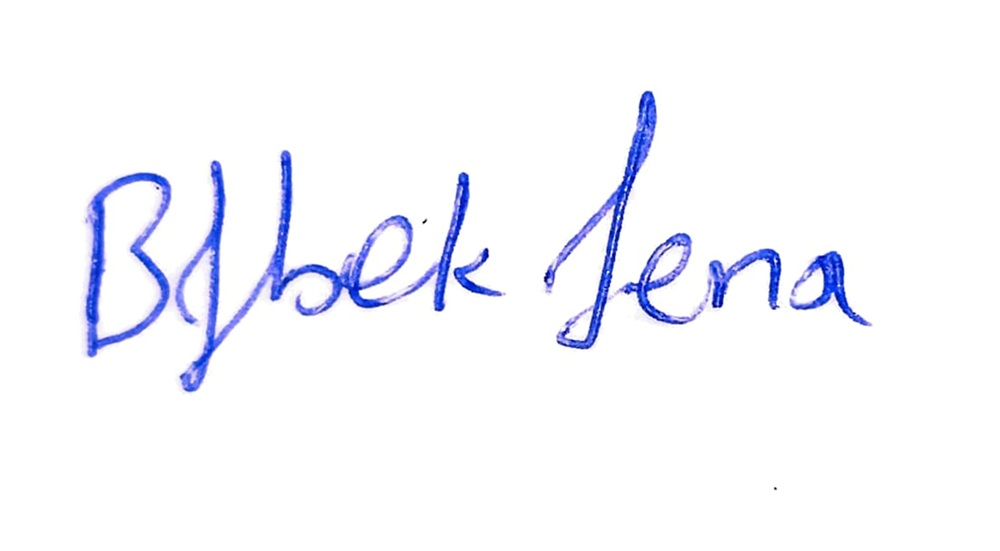 Bibek Jena